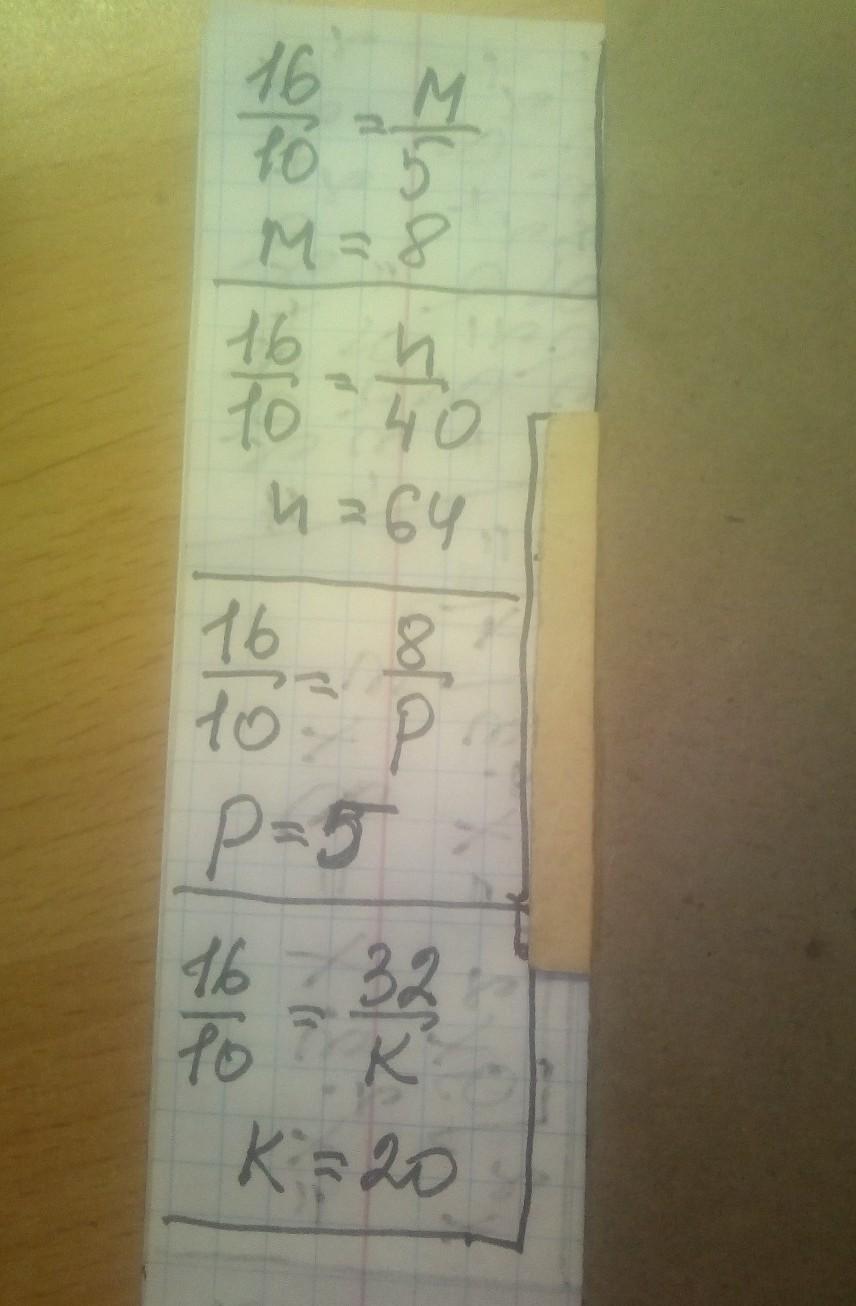 16/10 = M/5
M = 8
16/10 = n/40
n = 64
16/10 = 8/P
P = 5
16/10 = 32/K
K = 20